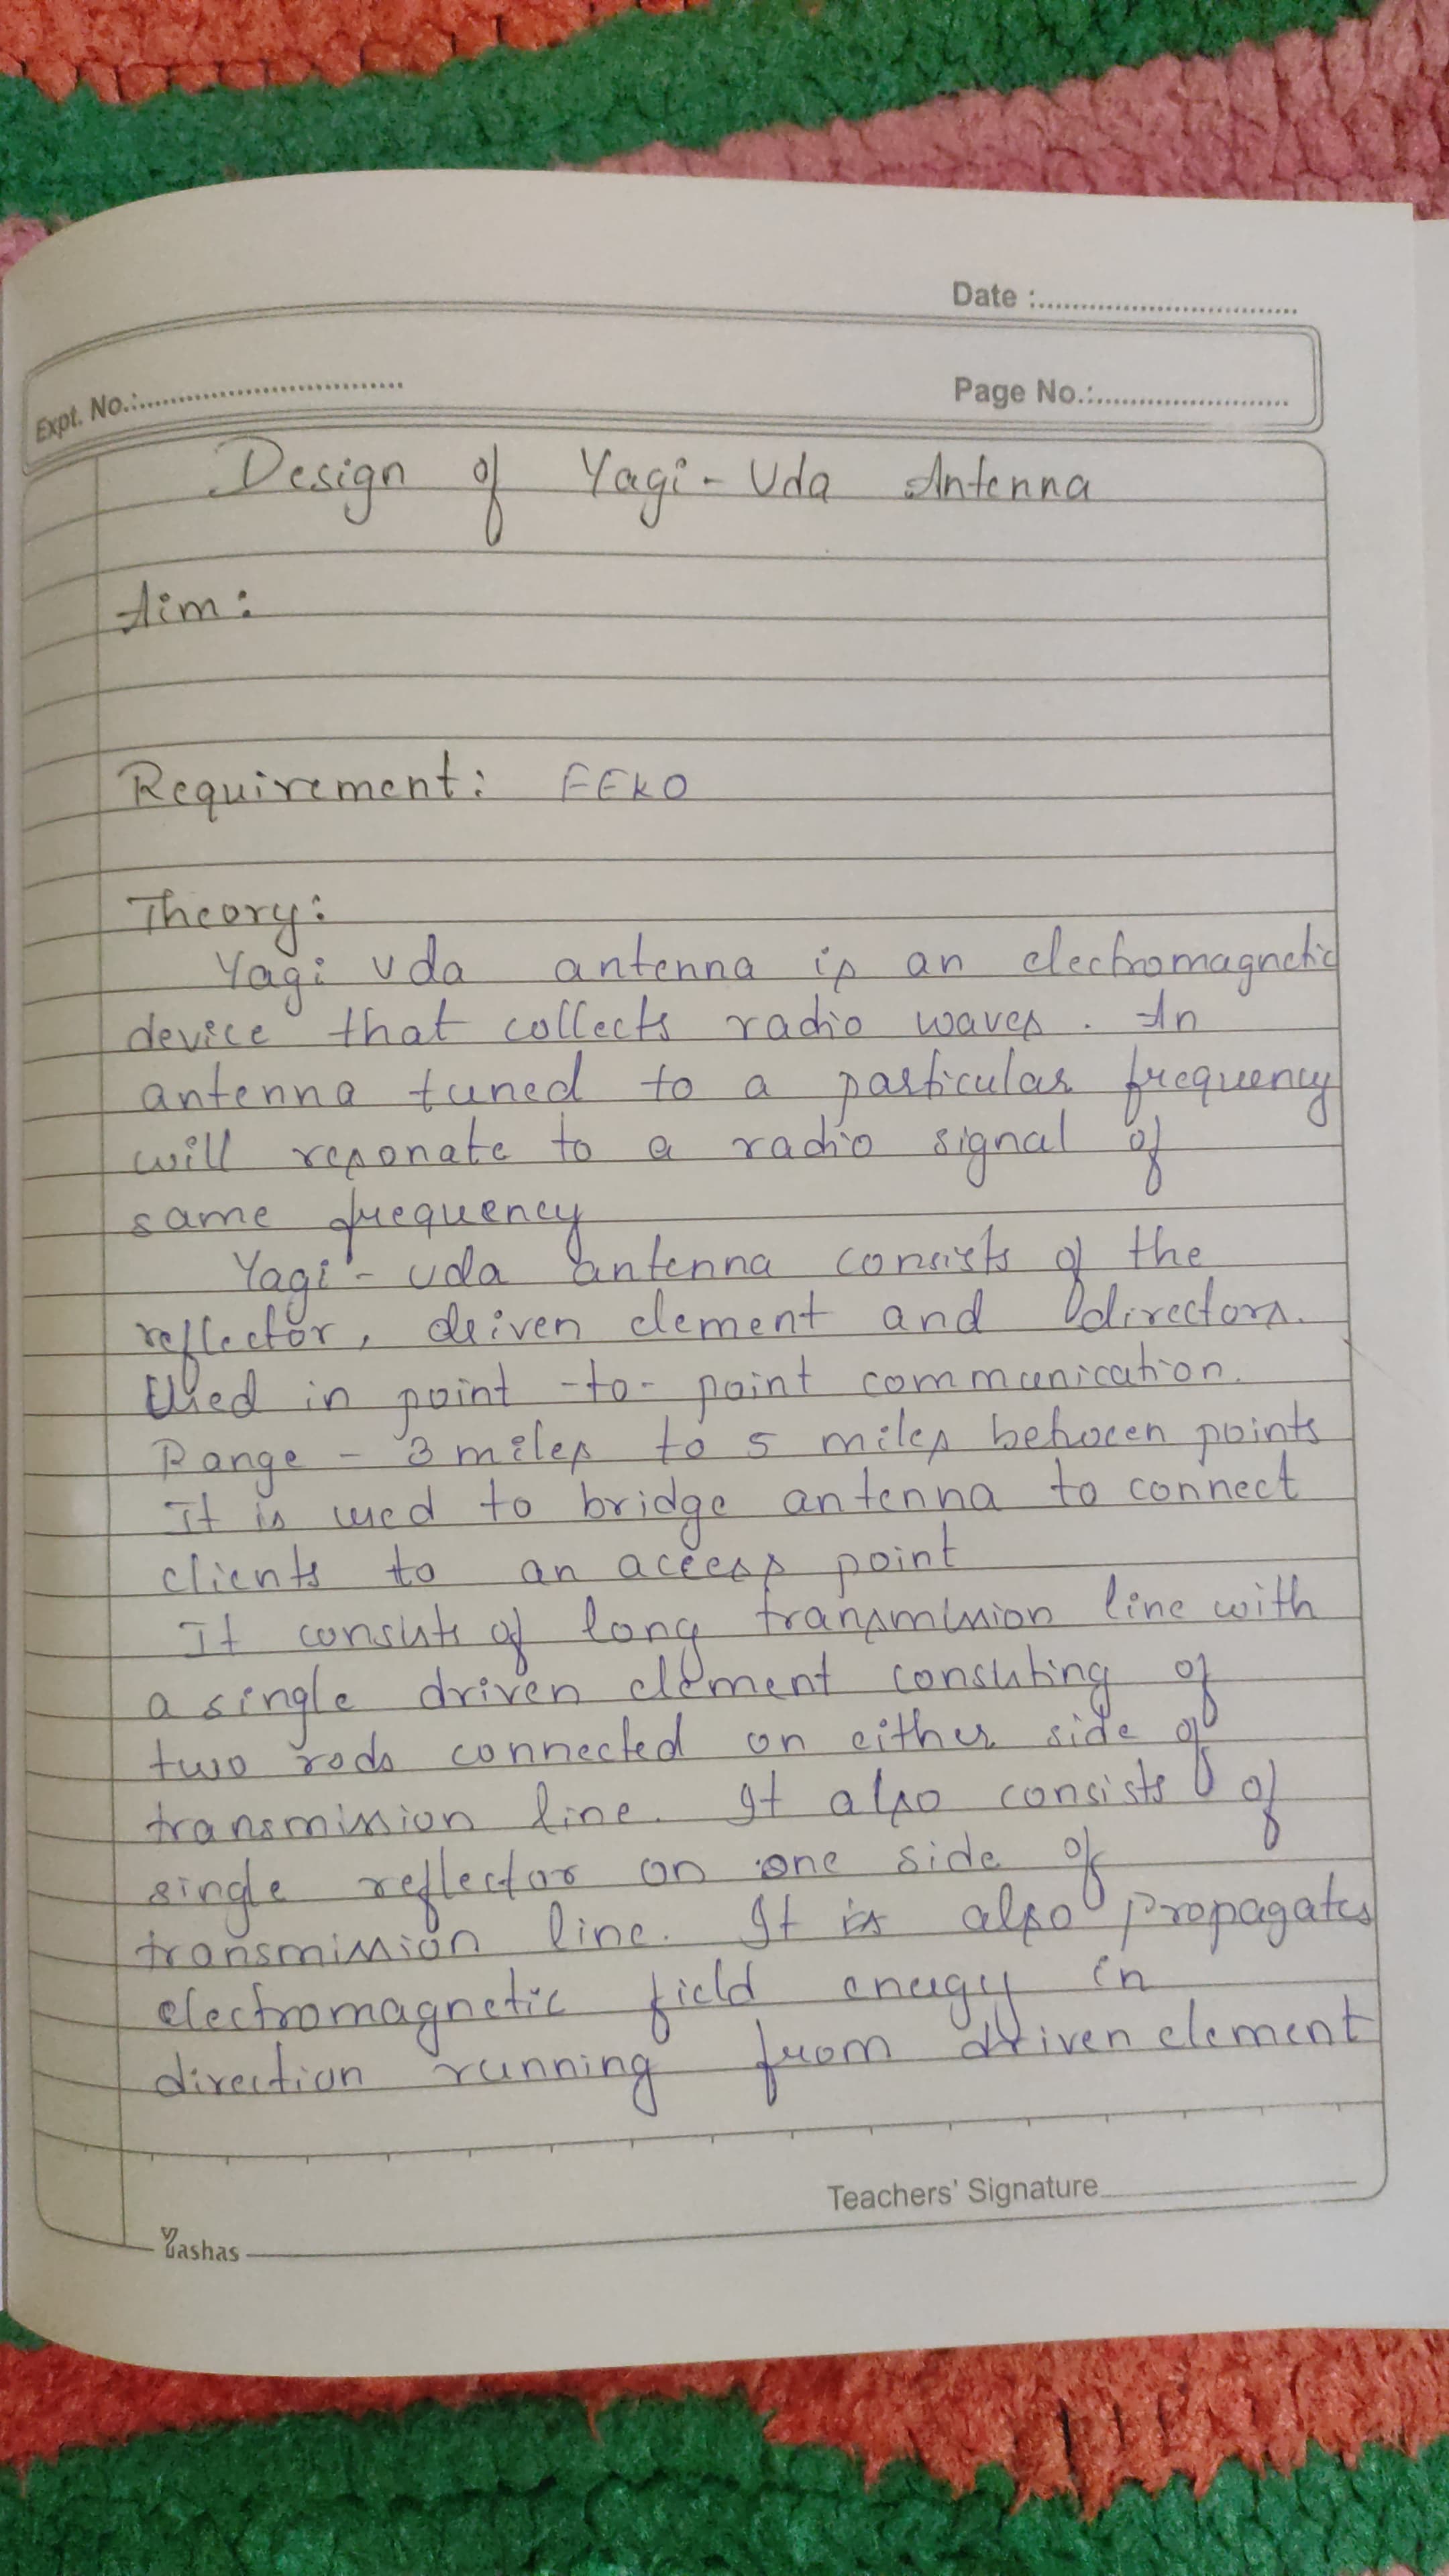 Date :
Expt. No.:
Page No.:
Design of Yagi-Uda Antenna
Aim:
Requirement: FEKO
Theory:
Yagi Uda antenna is an electromagnetic
device that collects radio waves. An
antenna tuned to a particular frequency
will resonate to a radio signal of
same frequency
Yagi-Uda antenna consists of the
reflector, driven element and directors.
Used in point-to-point communication.
Range - 3 miles to 5 miles between points
It is used to bridge antenna to connect
clients to an access point
It consists of long transmission line with
a single driven element consisting of
two rods connected on either side of
transmission line. It also consists of
single reflector on one side of
transmission line. It is also propagates
electromagnetic field energy in
direction running from driven element
Teachers' Signature
Yashas